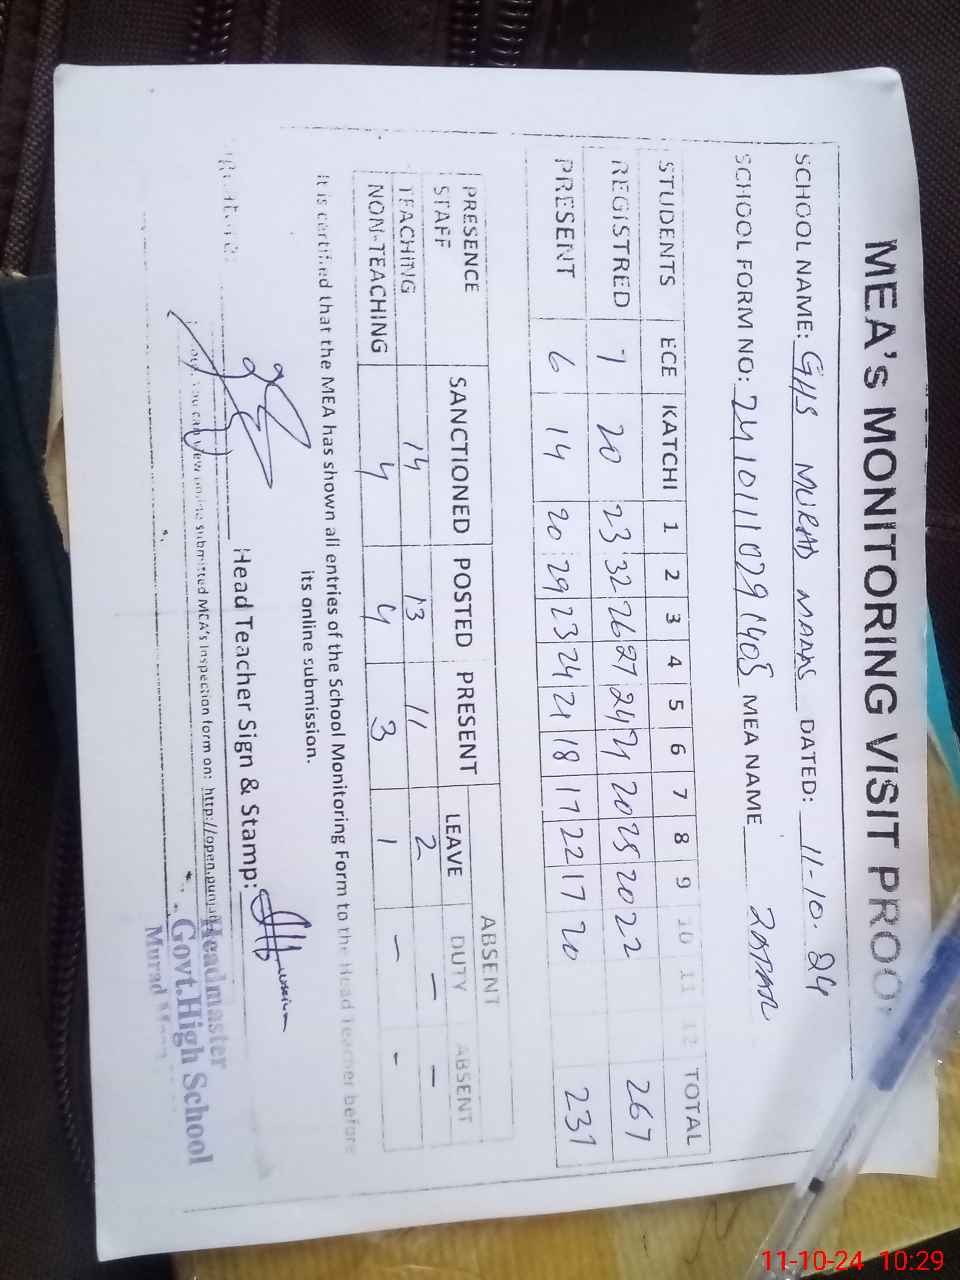 MEA's MONITORING VISIT PROO
SCHOOL NAME: GHS MURAD MAAN DATED: 11-10-24
SCHOOL FORM NO: MEA NAME ZAFAR
STUDENTS ECE KATCHI 1 2 3 4 5 6 7 8 9 10 11 12 TOTAL
REGISTRED 7 20 23 32 26 27 24 21 20 25 20 22 267
PRESENT 6 14 20 29 23 24 21 18 17 22 17 20 231
PRESENCE SANCTIONED POSTED PRESENT ABSENT
STAFF LEAVE DUTY ABSENT
TEACHING 14 13 11 2 - -
NON-TEACHING 4 4 3 1 - -
It is certified that the MEA has shown all entries of the School Monitoring Form to the Head Teacher before
its online submission.
Head Teacher Sign & Stamp:
you can view online submitted MCA's Inspection form on: http://open.punja
Headmaster
Govt.High School
Murad
11-10-24 10:29